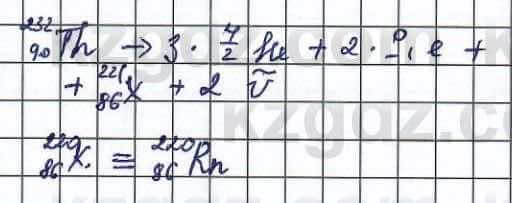 ²³²₉₀Th → 3 · ⁴₂He + 2 · ⁰₋₁e +
+ ²²⁰₈₆X + 2 ṽ
²²⁰₈₆X ≡ ²²⁰₈₆Rn